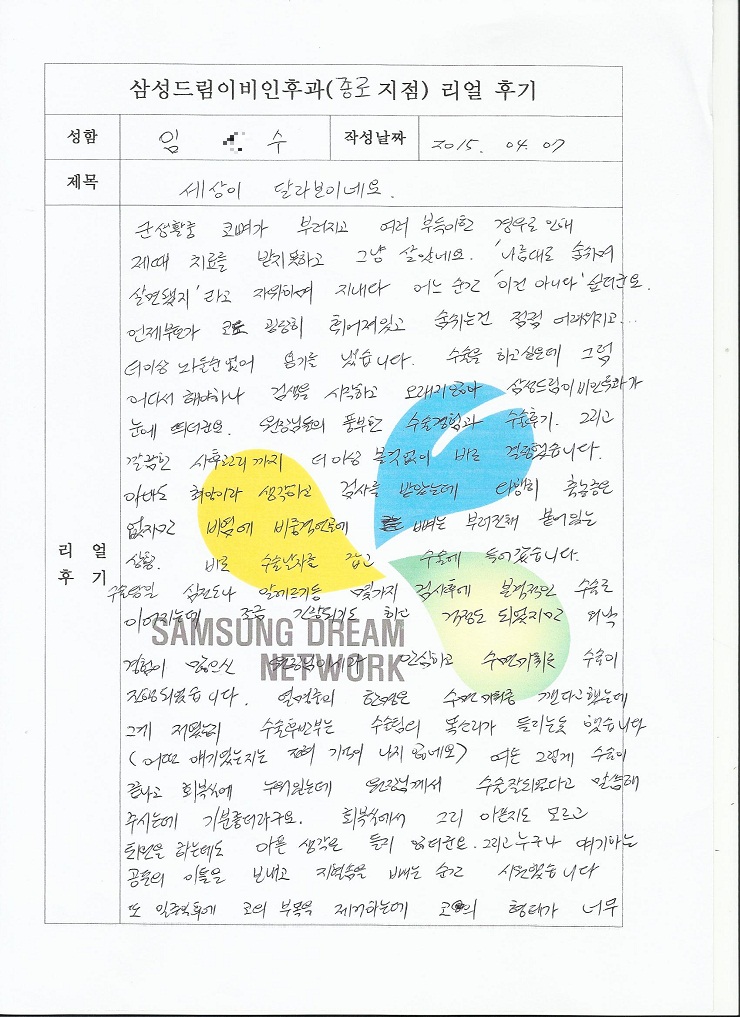 삼성드림이비인후과(종로 지점) 리얼 후기
성함 임 수 작성날짜 2015. 04. 07
제목 세상이 달라보이네요.
리 얼
후 기
군생활중 코뼈가 부러지고 여러 부득이한 경우로 인해
제때 치료를 받지못하고 그냥 살았네요. '나름대로 숨쉬며
살면됐지' 라고 자위하며 지내다 어느 순간 '이건 아니다' 싶더군요.
언제부턴가 코도 굉장히 휘어져있고 숨쉬는건 점점 어려워지고...
더이상 놔둘순없어 용기를 냈습니다. 수술을 하고싶은데 그럼
어디서 해야하나 검색을 시작하고 오래지않아 삼성드림이비인후과가
눈에 띄더군요. 원장님들의 풍부한 수술경험과 수술후기. 그리고
깔끔한 사후관리까지 더이상 볼것없이 바로 결정했습니다.
아마도 희망이라 생각하고 검사를 받았는데 다행히 축농증은
없지만 비염에 비중격만곡에 뼈는 부러진채 붙어있는
상황. 바로 수술날짜를 잡고 수술에 들어갔습니다.
수술당일 심전도나 알레르기등 몇가지 검사후에 본격적인 수술로
이어지는데 조금 긴장되기도 하고 걱정도 되었지만 워낙
경험이 많으신 원장님이시라 안심하고 수면마취로 수술이
진행되었습니다. 열명중의 한명은 수면마취중 깬다고했는데
그게 저였는지 수술후반부는 수술팀의 목소리가 들리는듯 했습니다
(어떤 얘기였는지는 전혀 기억이 나지 않네요) 여튼 그렇게 수술이
끝나고 회복실에 누워있는데 원장님께서 수술잘되었다고 말씀해
주시는데 기분좋더라구요. 회복실에서 그리 아픈지도 모르고
퇴원을 하는데도 아픈 생각은 들지 않더군요. 그리고 누구나 얘기하는
공포의 이틀을 보내고 지혈솜을 빼는 순간 시원했습니다
또 일주일후에 코의 부목을 제거하는데 코의 형태가 너무
SAMSUNG DREAM
NETWORK